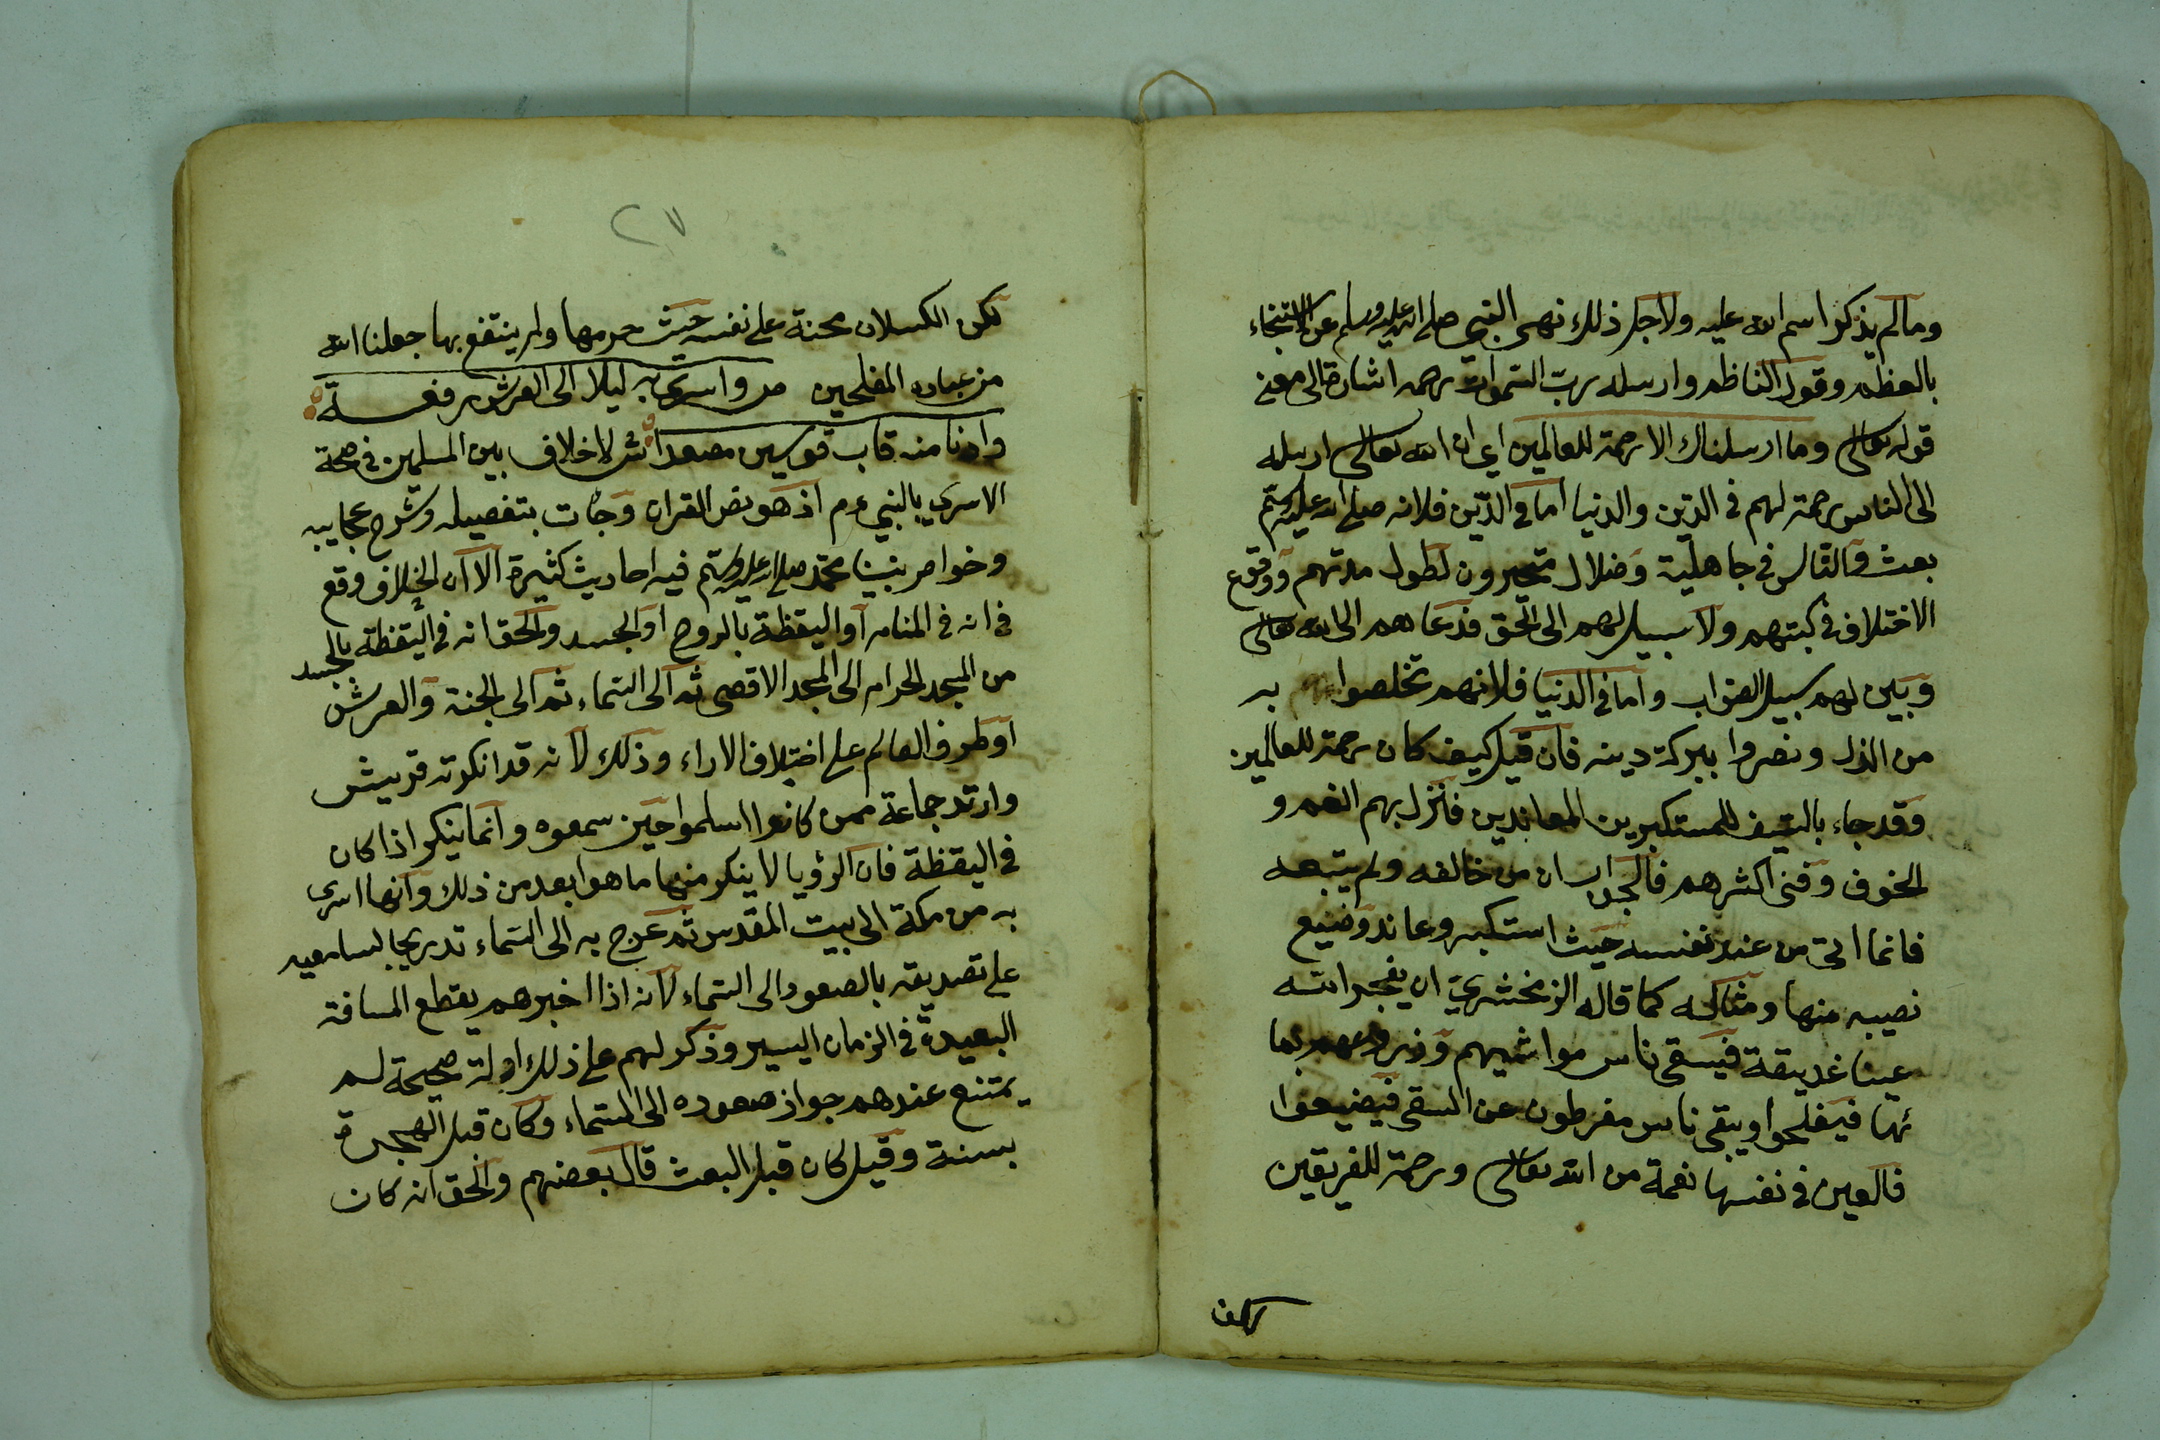 ومالم يذكر اسم الله عليه ولاجل ذلك نهى النبي صلى الله عليه وسلم عن الاستنجاء
بالعظم وقول الناظم وارسله رب السموات رحمة اشارة الى معنى
قوله تعالى وما ارسلناك الا رحمة للعالمين اي ان الله تعالى ارسله
الى الناس رحمة لهم في الدين والدنيا اما في الدين فلانه صلى الله عليه وسلم
بعث والناس في جاهلية وضلال متحيرون لطول مدتهم ووقوع
الاختلاف في كبتهم ولا سبيل لهم الى الحق فدعاهم الى الله تعالى
وبين لهم سبيل الصواب واما في الدنيا فلانهم تخلصوا به
من الذل ونصروا ببركة دينه فان قيل كيف كان رحمة للعالمين
وقد جاء بالسيف للمستكبرين المعاندين فانزل بهم الغم و
الخوف وفنى اكثرهم فالجواب ان من خالفه ولم يتبعه
فانما اتى من عند نفسه حيث استكبر وعاند وضيع
نصيبه منها ومثاله كما قاله الزمخشري ان يفجر الله
عينا غديقة فيسقى ناس مواشيهم وزروعهم بما
ئها فيفلحوا ويبقى ناس مفرطون عن السقى فيضيعوا
فالعين في نفسها نعمة من الله تعالى ورحمة للفريقين
لكن
٢٧
لكن الكسلان محنة على نفسه حيث حرمها ولم ينتفع بها جعلنا الله
من عباده المفلحين ص واسرى به ليلا الى العرش رفعة
وادنا منه قاب قوسين مصعدا ش لا خلاف بين المسلمين في صحة
الاسرى بالنبي عم اذ هو نص القران وجات بتفصيله وشرح عجايبه
وخواص نبينا محمد صلى الله عليه وسلم فيه احاديث كثيرة الا ان الخلاف وقع
في انه في المنام او اليقظة بالروح او الجسد والحق انه في اليقظة بالجسد
من المسجد الحرام الى المسجد الاقصى ثم الى السماء ثم الى الجنة والعرش
او طرف العالم على اختلاف الاراء وذلك لانه قد انكرته قريش
وارتد جماعة ممن كانوا اسلموا حين سمعوه وانما ينكر اذا كان
في اليقظة فان الرؤيا لا ينكر منها ما هو ابعد من ذلك وانما اسرى
به من مكة الى بيت المقدس ثم عرج به الى السماء تدريجا لسامعيه
على تصديقه بالصعود الى السماء لانه اذا اخبرهم بقطع المسافة
البعيدة في الزمان اليسير وذكر لهم على ذلك ادلة صحيحة لم
يمتنع عندهم جواز صعوده الى السماء وكان قبل الهجرة
بسنة وقيل كان قبل البعث قال بعضهم والحق انه كان